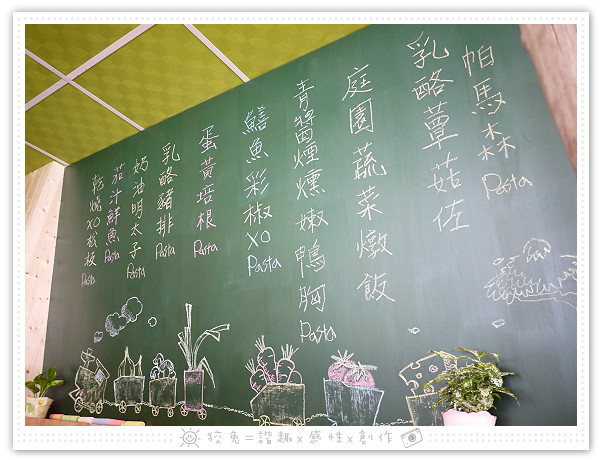 帕馬森 Pasta
乳酪蕈菇佐
庭園蔬菜燉飯
青醬煙燻嫩鴨胸 Pasta
鱔魚彩椒XO Pasta
蛋黃培根 Pasta
乳酪豬排 Pasta
奶油明太子 Pasta
茄汁鮮魚 Pasta
乾燒XO干板 Pasta
狡兔=諧趣x感性x創作